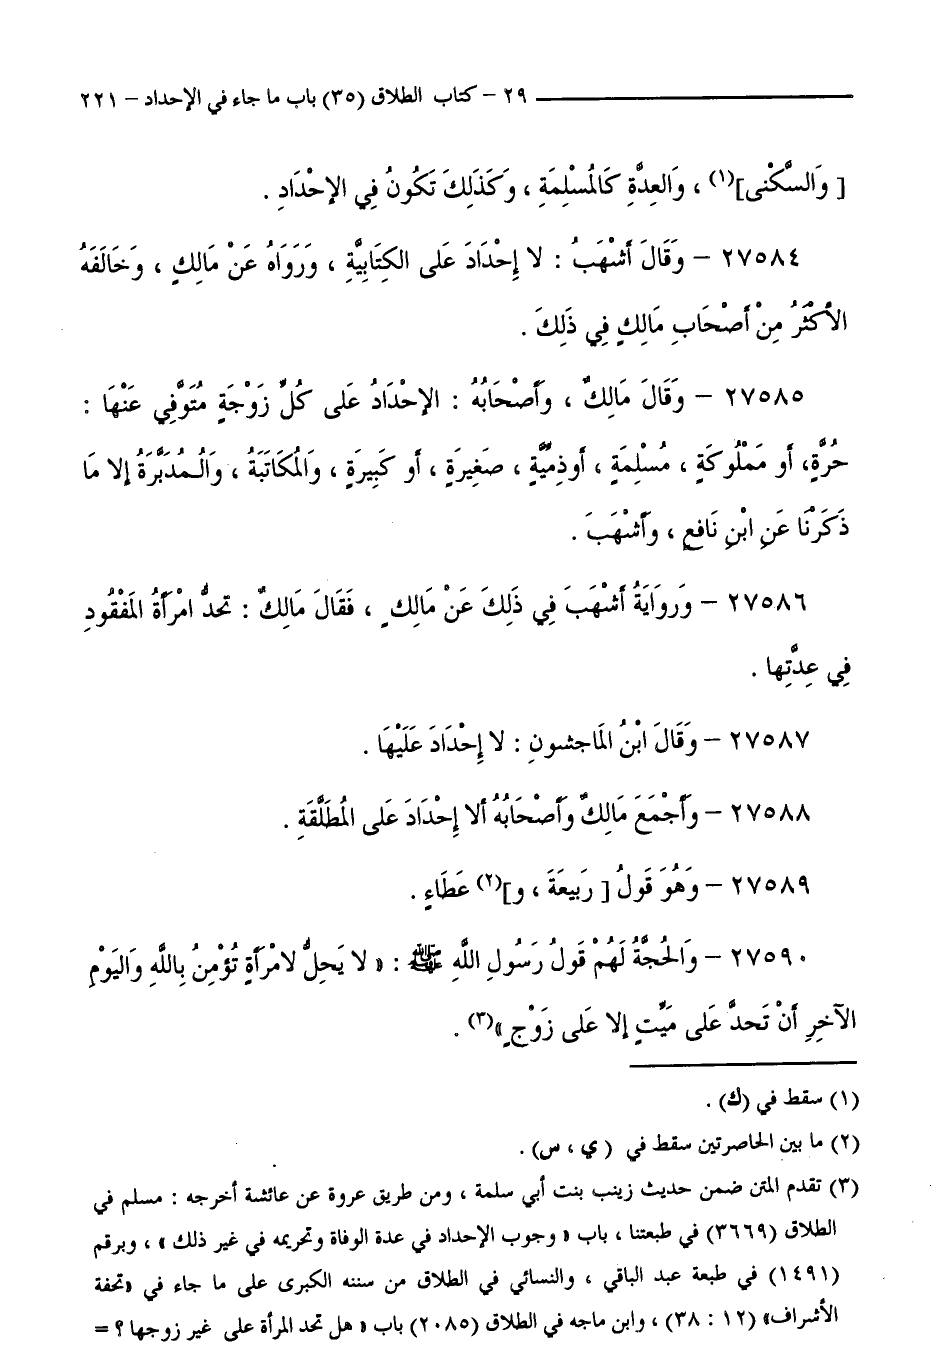 ٢٩ – كتاب الطلاق (٣٥) باب ما جاء في الإحداد – ٢٢١
[ وَالسُّكْنى](١) ، وَالعِدَّةِ كَالمُسْلِمَةِ ، وَكَذَلِكَ تَكُونُ فِي الإحْدَادِ .
٢٧٥٨٤ – وَقَالَ أَشْهَبُ : لا إِحْدَادَ عَلى الكِتَابِيَّةِ ، وَرَوَاهُ عَنْ مَالِكٍ ، وَخَالَفَهُ
الأكْثَرُ مِنْ أصْحَابِ مَالِكٍ فِي ذَلِكَ .
٢٧٥٨٥ – وَقَالَ مَالِكٌ ، وَأَصْحَابُهُ : الإحْدَادُ عَلى كُلِّ زَوْجَةٍ مُتَوَفَّي عَنْهَا :
حُرَّةٍ، أو مَمْلُوكَةٍ ، مُسْلِمَةٍ ، أوذِمِيَّةٍ ، صَغِيرَةٍ ، أو كَبِيرَةٍ ، وَالمُكَاتَبَةُ ، وَالْـمُدَبَّرَةُ إلا مَا
ذَكَرْنَا عَنِ ابْنِ نَافِعٍ ، وَأَشْهَبَ .
٢٧٥٨٦ – وَروَايَةُ أَشْهَبَ فِي ذَلِكَ عَنْ مَالِكٍ ، فَقَالَ مَالِكٌ : تحدُّ امْرَأةُ المَفْقُودِ
فِي عِدَّتِها .
٢٧٥٨٧ – وَقَالَ ابْنُ المَاجشونِ : لا إِحْدَادَ عَلَيْهَا .
٢٧٥٨٨ – وَأَجْمَعَ مَالِكٌ وَأصْحَابُهُ ألا إِحْدَادَ عَلى المُطَلَّقَةِ .
٢٧٥٨٩ – وَهُوَ قَولُ [ رَبِيعَةَ ، و](٢) عَطَاءٍ .
٢٧٥٩٠ – وَالحُجَّةُ لَهُمْ قَولُ رَسُولِ اللَّهِ ﷺ : « لا يَحِلُّ لامْرَأةٍ تُؤْمِنُ بِاللَّهِ وَاليَوْمِ
الآخِرِ أَنْ تَحدَّ عَلى مَيِّتٍ إلا عَلى زَوْجٍ»(٣) .
(١) سقط في (ك) .
(٢) ما بين الحاصرتين سقط في ( ي ، س) .
(٣) تقدم المتن ضمن حديث زينب بنت أبي سلمة ، ومن طريق عروة عن عائشة أخرجه : مسلم في
الطلاق (٣٦٦٩) في طبعتنا ، باب « وجوب الإحداد في عدة الوفاة وتحريمه في غير ذلك » ، وبرقم
(١٤٩١) في طبعة عبد الباقي ، والنسائي في الطلاق من سننه الكبرى على ما جاء في «تحفة
الأشراف» (١٢ : ٣٨) ، وابن ماجه في الطلاق (٢٠٨٥) باب « هل تحد المرأة على غير زوجها ؟ =